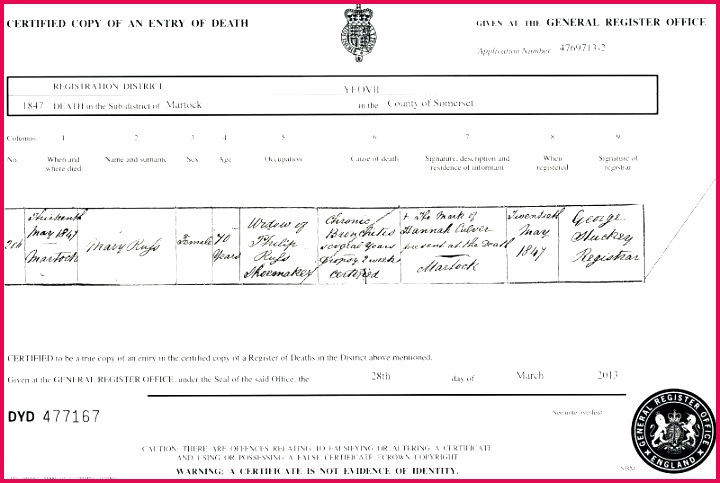 CERTIFIED COPY OF AN ENTRY OF DEATH
GIVEN AT THE GENERAL REGISTER OFFICE
Application Number 4769713-2
REGISTRATION DISTRICT YEOVIL
1847 DEATH in the Sub-district of Martock in the County of Somerset
Columns 1 2 3 4 5 6 7 8 9
No. When and where died Name and surname Sex Age Occupation Cause of death Signature, description and residence of informant When registered Signature of registrar
Thirteenth May 1847 Martock
Mary Russ
Female
70 Years
Widow of Philip Russ Shoemaker
Chronic Bronchitis several years Dropsy 2 weeks certified
+ The Mark of Hannah Culver present at the Death Martock
Twentieth May 1847
George Stuckey Registrar
CERTIFIED to be a true copy of an entry in the certified copy of a Register of Deaths in the District above mentioned.
Given at the GENERAL REGISTER OFFICE, under the Seal of the said Office, the 28th day of March 2013
DYD 477167
See note overleaf
GENERAL REGISTER OFFICE
ENGLAND
CAUTION: THERE ARE OFFENCES RELATING TO FALSIFYING OR ALTERING A CERTIFICATE
AND USING OR POSSESSING A FALSE CERTIFICATE ©CROWN COPYRIGHT
WARNING: A CERTIFICATE IS NOT EVIDENCE OF IDENTITY.